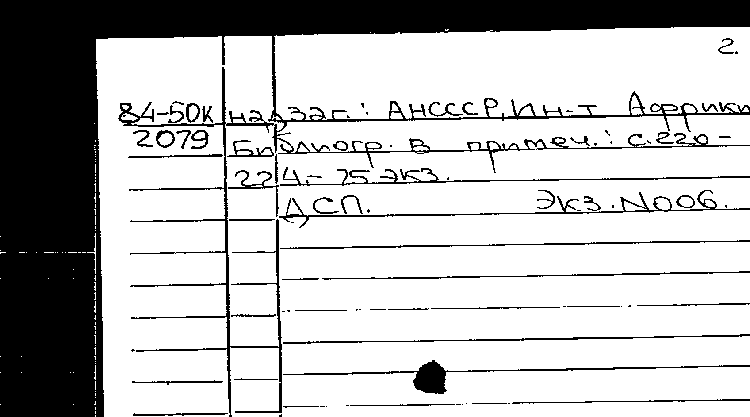 2.
84-50К надзаг.: АНСССР, Ин-т Африки
2079 Библиогр. в примеч.: с.220-
224.- 75 экз.
ДСП. Экз.N006.